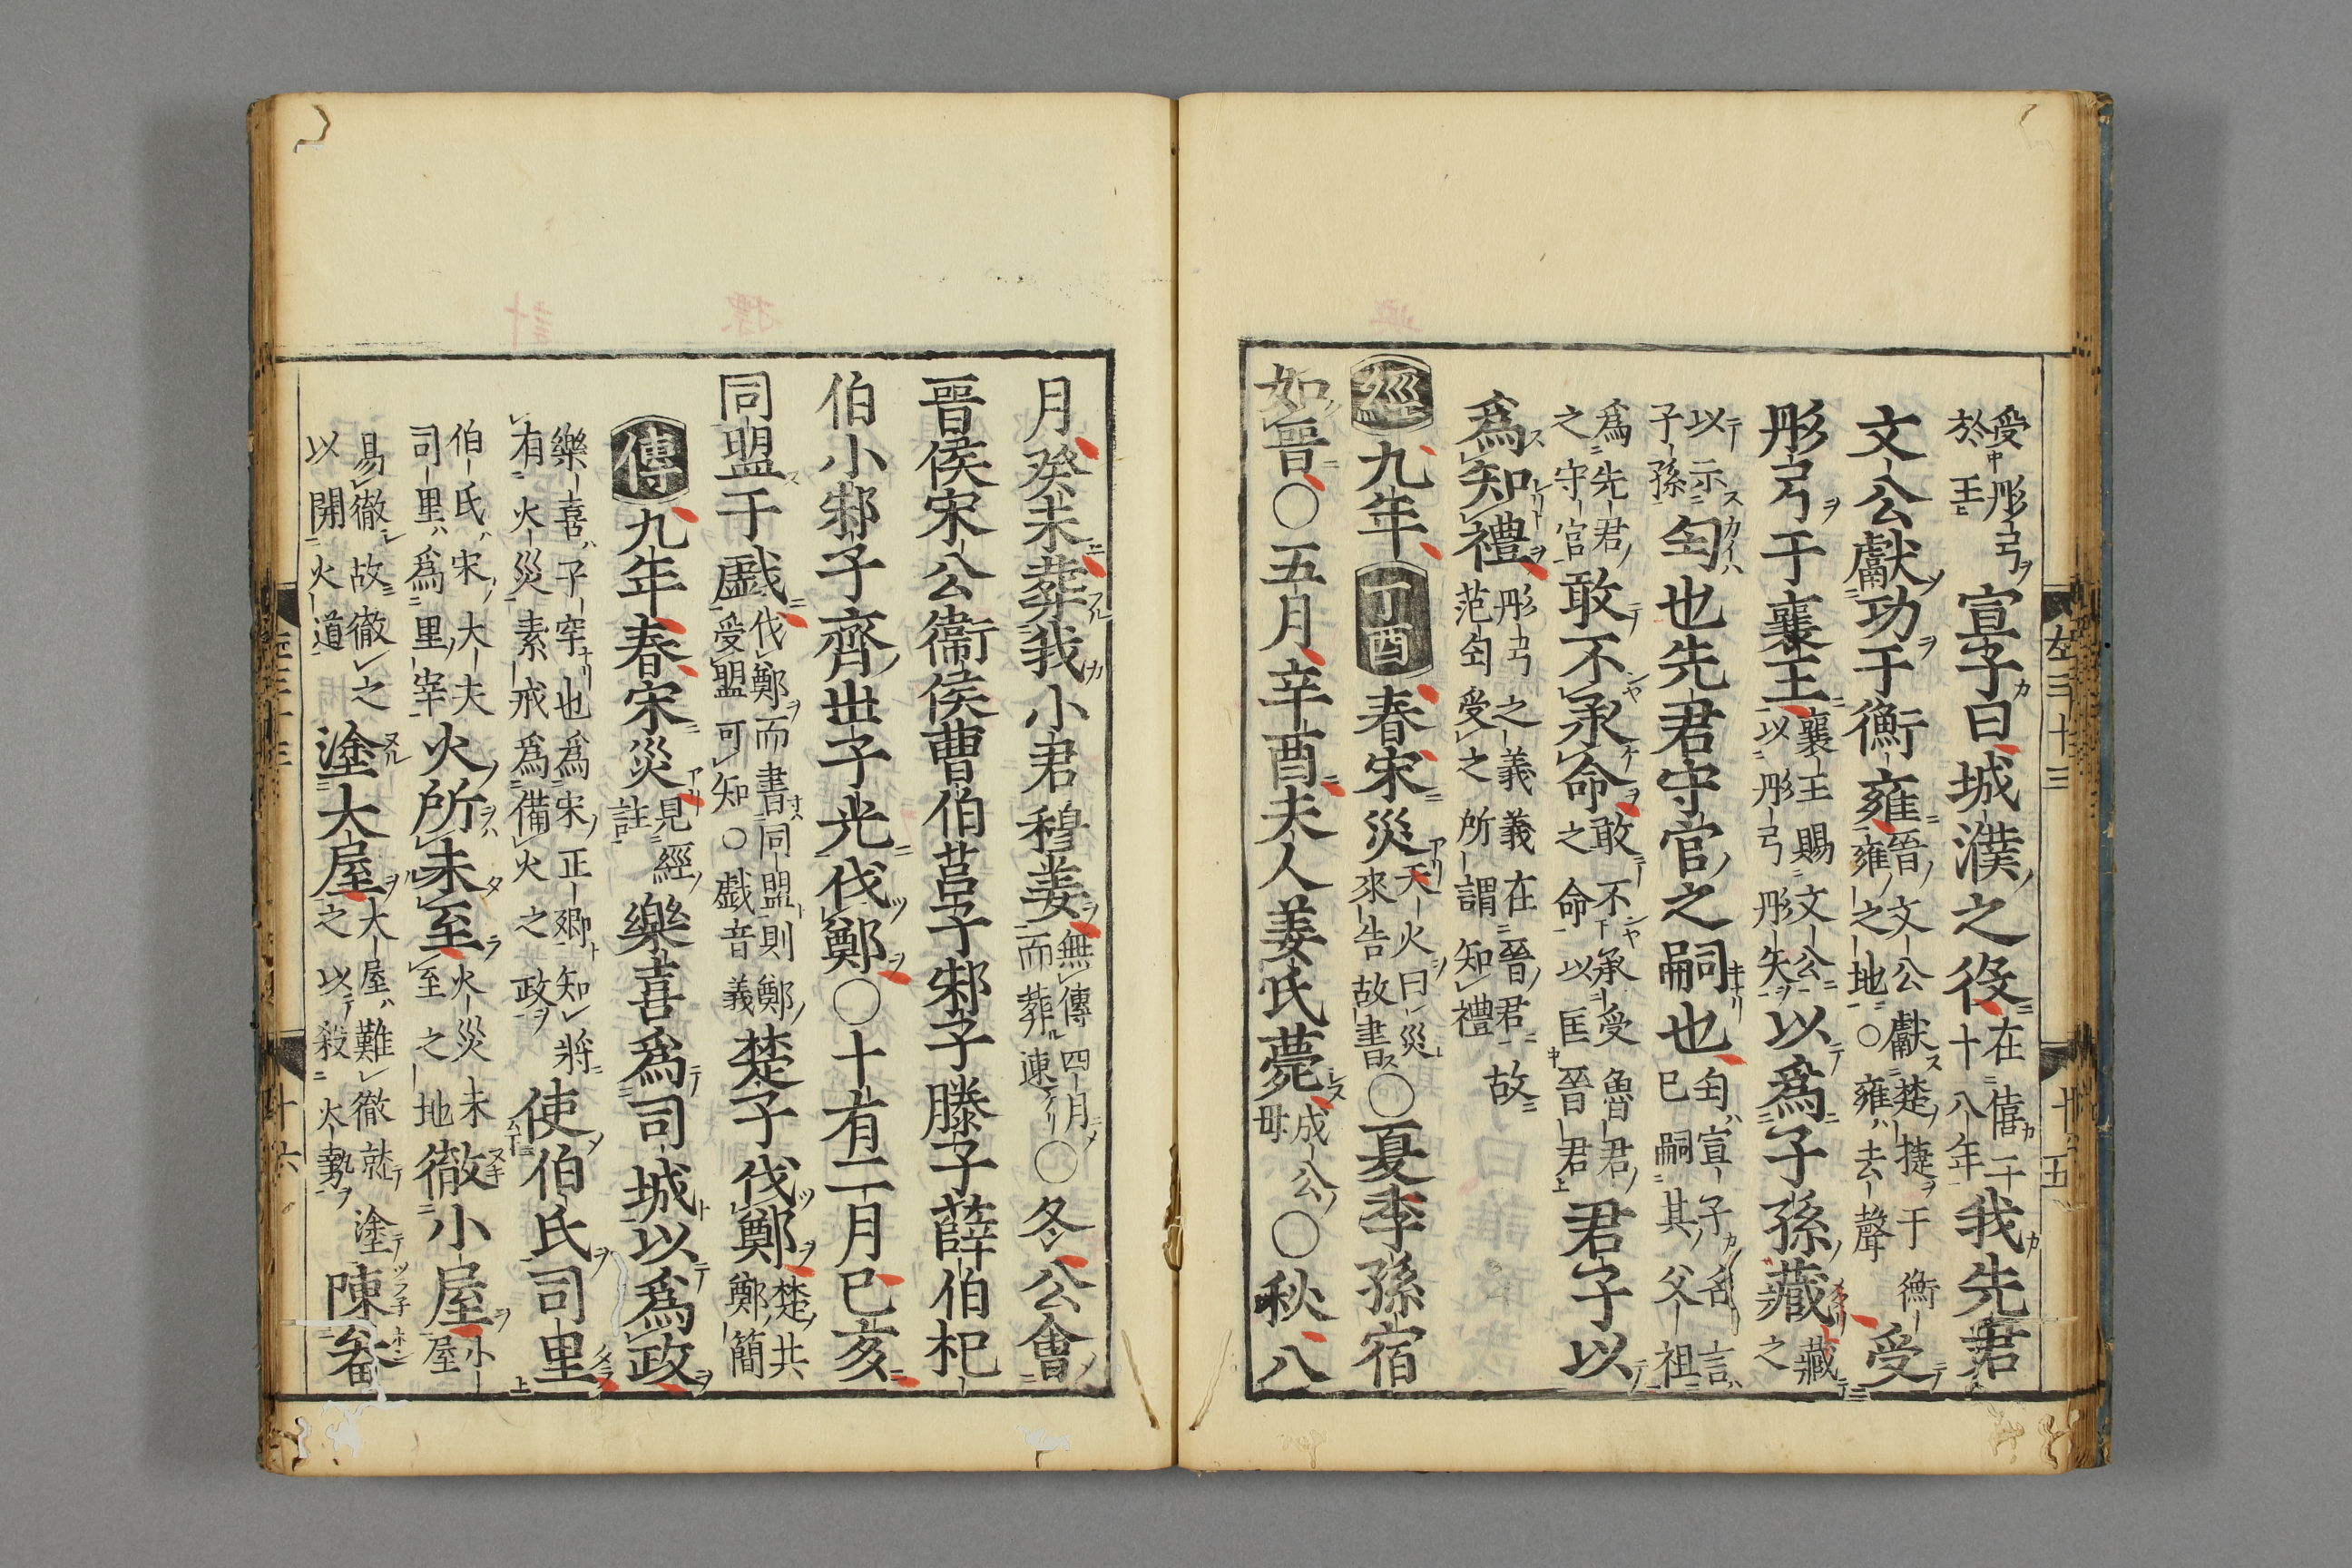 受彤弓於王宣子曰城濮之役在僖二十八年我先君
文公獻功于衡雍晉文公獻楚捷于衡雍之地○雍去聲受
彤弓于襄王襄王賜文公以彤弓彤矢以爲子孫藏藏之
以示子孫匄也先君守官之嗣也匄宣子名言已嗣其父祖
爲先君之守官敢不承命敢不承受魯君之命以匡晉君君子以
爲知禮彤弓之義義在晉君故范匄受之所謂知禮
經九年丁酉春宋災天火曰災來告故書○夏季孫宿
如晉○五月辛酉夫人姜氏薨成公母○秋八
左三十三
十五
月癸未葬我小君穆姜無傳四月而葬速○冬公會
晉侯宋公衞侯曹伯莒子邾子滕子薛伯杞
伯小邾子齊世子光伐鄭○十有二月己亥
同盟于戲伐鄭而書同盟則鄭受盟可知○戲音義楚子伐鄭楚共鄭簡
傳九年春宋災見經註樂喜爲司城以爲政
樂喜子罕也爲宋正卿知將有火災素戒爲備火之政使伯氏司里
伯氏宋大夫司里爲里宰火所未至火災未至之地徹小屋小屋
易徹故徹之以開火道塗大屋大屋難徹就塗之以殺火勢陳畚
左三十三
十六